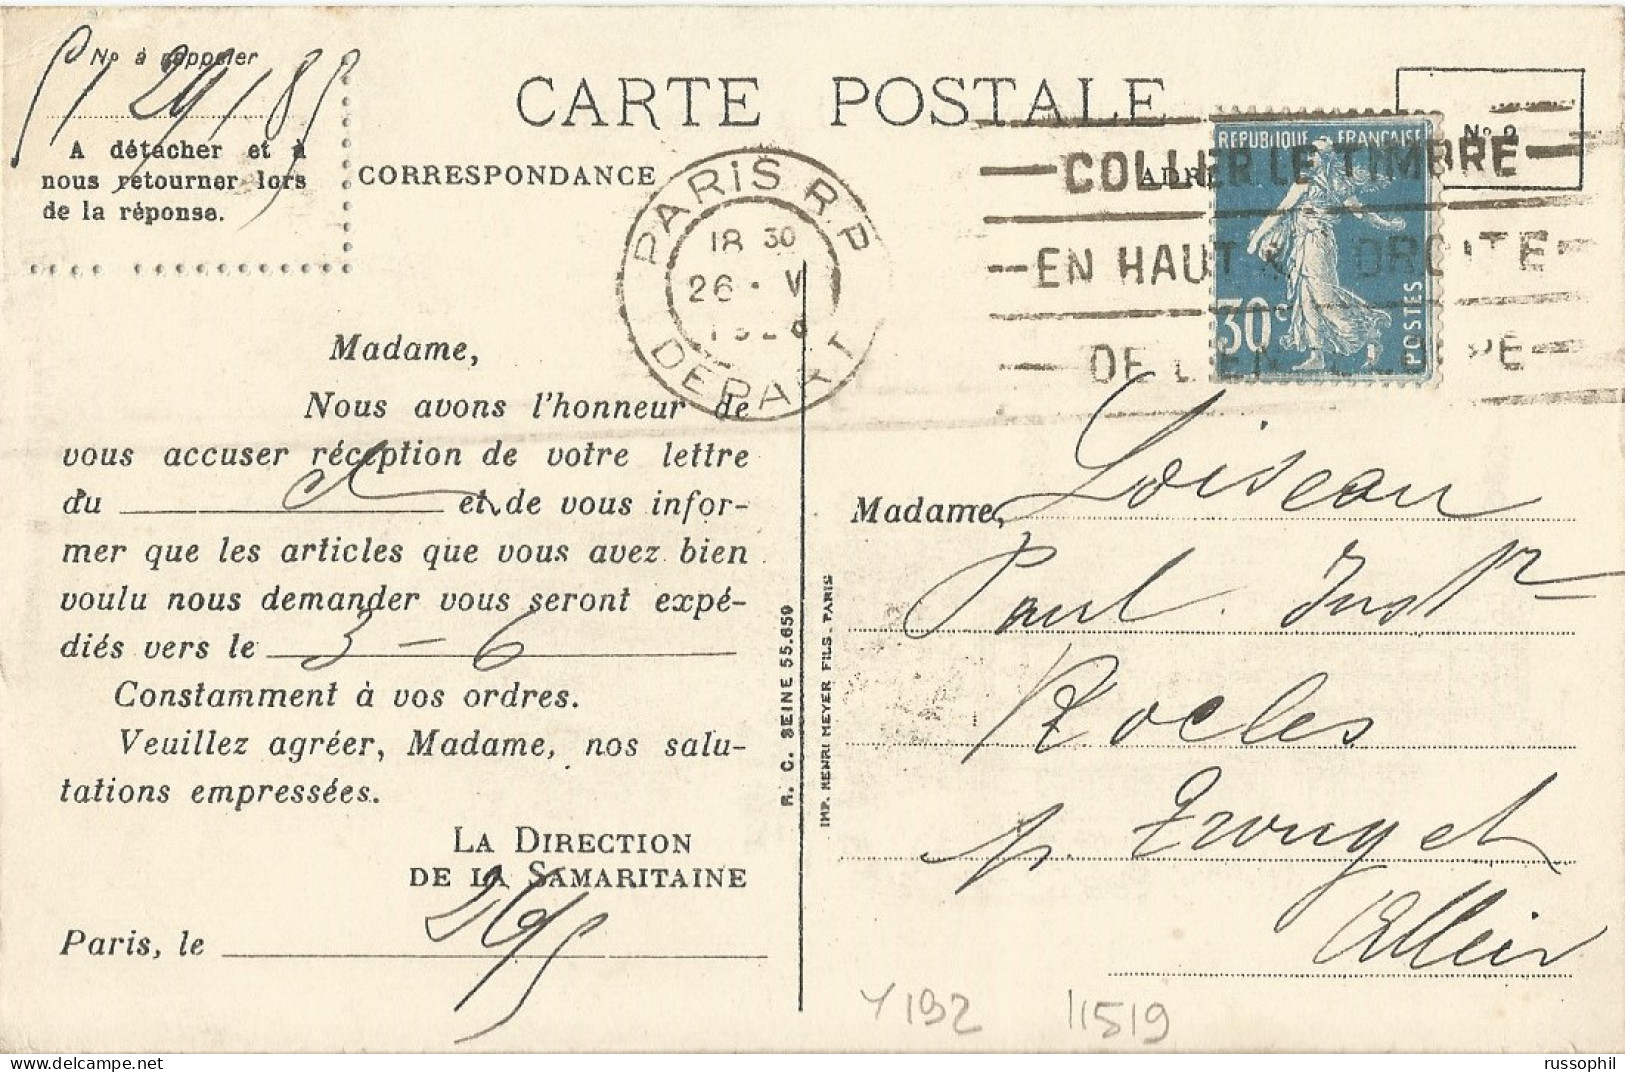 No à rappeler
A détacher et à
nous retourner lors
de la réponse.
CARTE POSTALE
CORRESPONDANCE
No 2
PARIS R.P
18 30
26 · V
1928
DEPART
REPUBLIQUE FRANÇAISE
30c
POSTES
COLLER LE TIMBRE
EN HAUT & A DROITE
DE L'ENVELOPPE
Madame,
Nous avons l'honneur de
vous accuser réception de votre lettre
du et de vous infor-
mer que les articles que vous avez bien
voulu nous demander vous seront expé-
diés vers le 3 - 6
Constamment à vos ordres.
Veuillez agréer, Madame, nos salu-
tations empressées.
LA DIRECTION
DE LA SAMARITAINE
Paris, le 26/5
R. C. SEINE 55.659
IMP. HENRI MEYER FILS - PARIS
Madame, Loiseau
Paul. Instr
Rocles
p. Tronget
Allier
Y192 11519
russophil